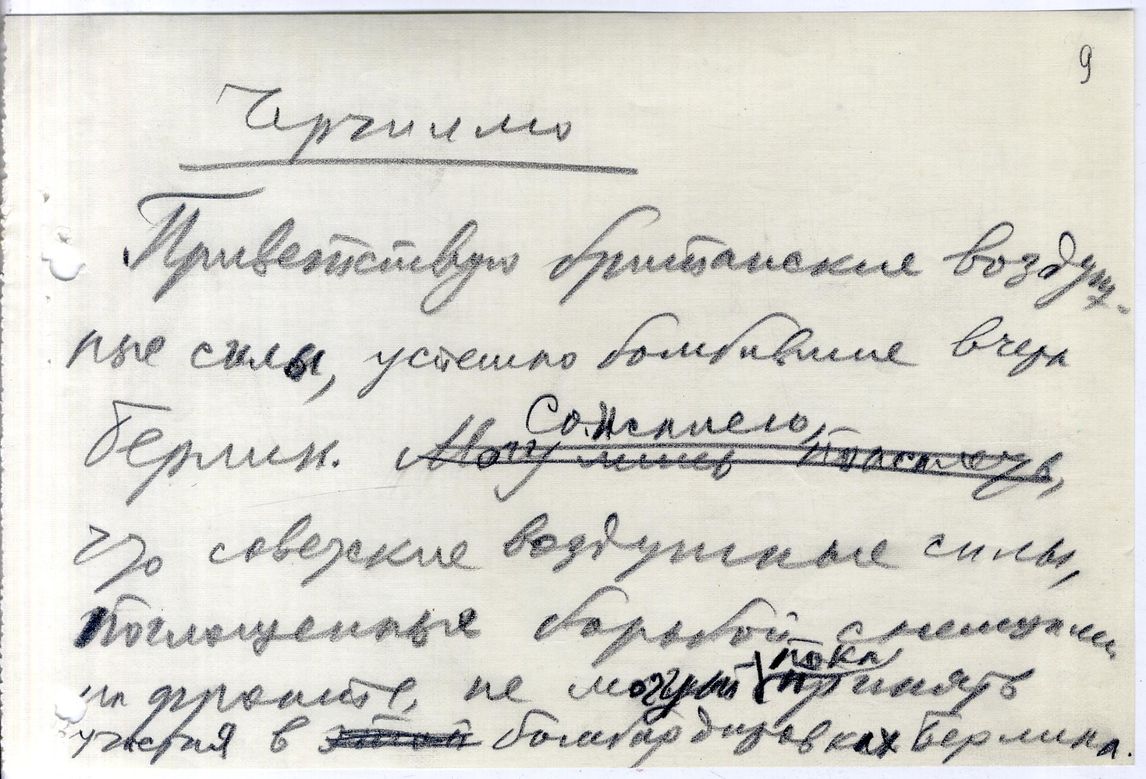 9
Черчиллю
Приветствую британские воздуш-
ные силы, успешно бомбившие вчера
Сожалею,
Берлин. Могу лишь пожалеть,
что советские воздушные силы,
поглощенные борьбой с немцами
пока
на фронте, не могут принять
участия в этой бомбардировках Берлина.